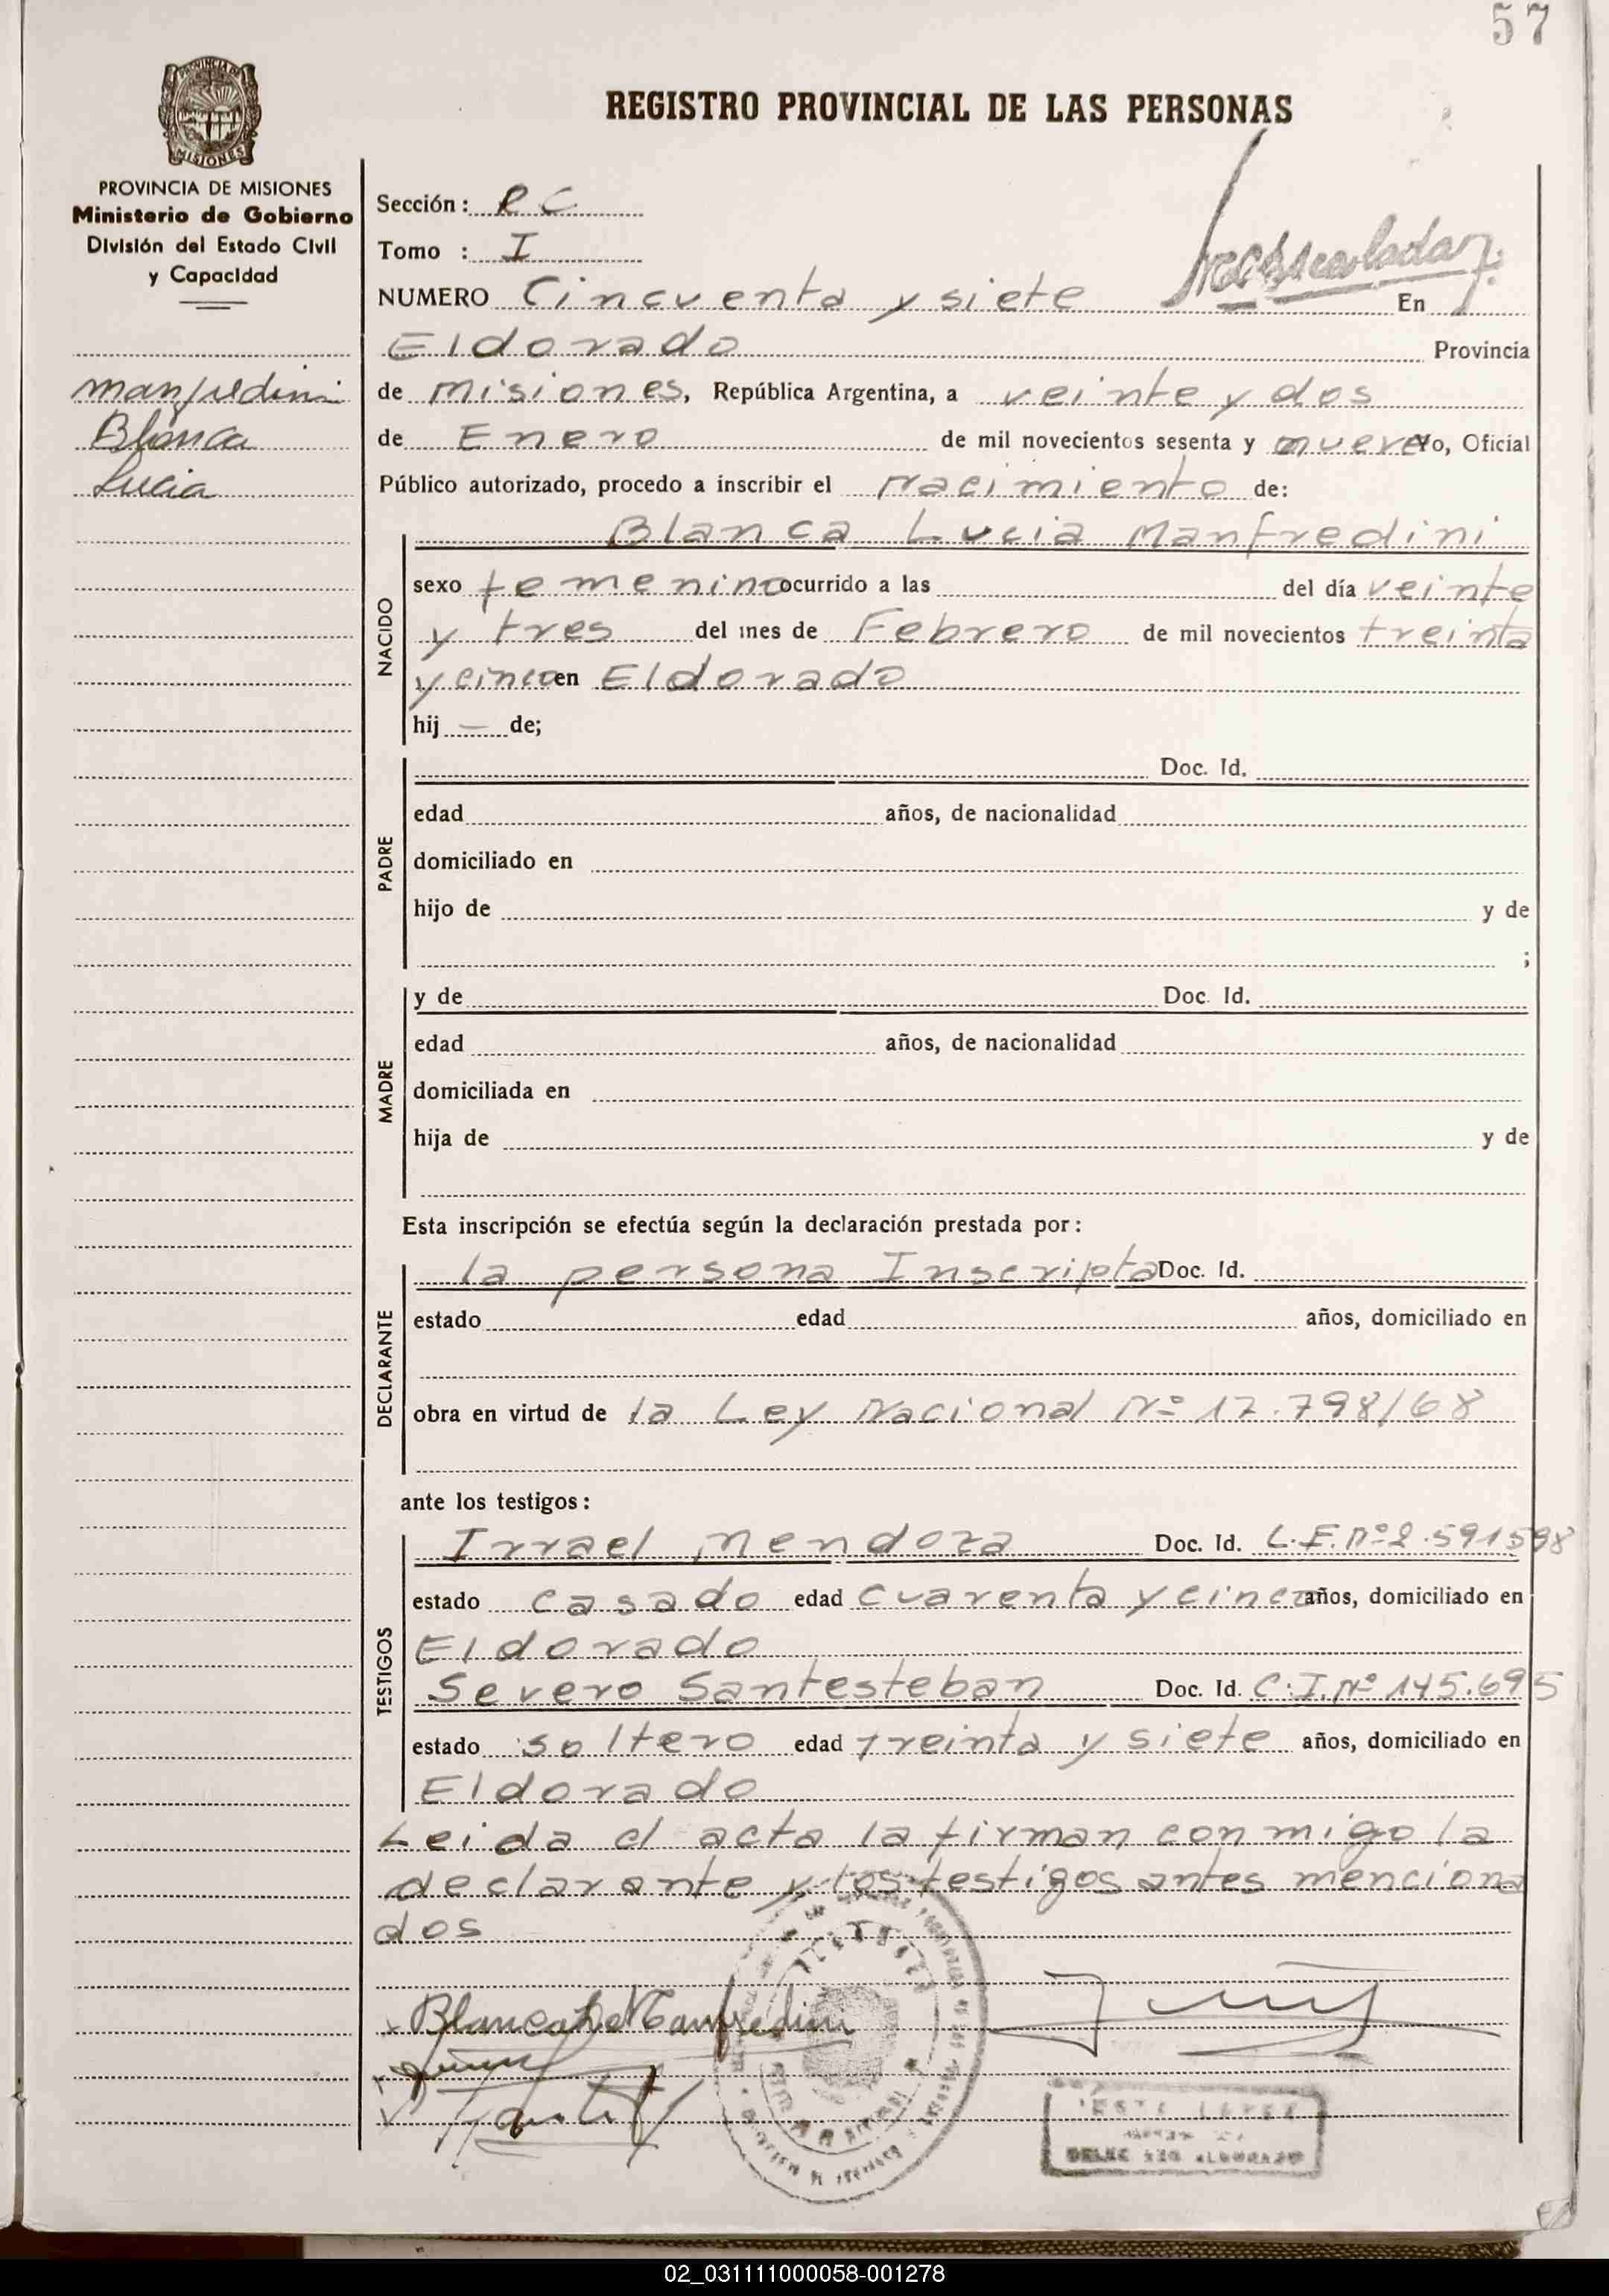 57
REGISTRO PROVINCIAL DE LAS PERSONAS
PROVINCIA DE MISIONES
Ministerio de Gobierno
División del Estado Civil
y Capacidad
Manfredini
Blanca
Lucia
Sección: RC
Tomo : I
NUMERO Cincuenta y siete En
Eldorado Provincia
de Misiones, República Argentina, a veinte y dos
de Enero de mil novecientos sesenta y nueve Yo, Oficial
Público autorizado, procedo a inscribir el Nacimiento de:
Blanca Lucia Manfredini
NACIDO
sexo femenino ocurrido a las del día veinte
y tres del mes de Febrero de mil novecientos treinta
y cinco en Eldorado
hij — de;
PADRE
Doc. Id.
edad años, de nacionalidad
domiciliado en
hijo de y de
;
MADRE
y de Doc. Id.
edad años, de nacionalidad
domiciliada en
hija de y de
Esta inscripción se efectúa según la declaración prestada por:
DECLARANTE
la persona Inscripta Doc. Id.
estado edad años, domiciliado en
obra en virtud de la Ley Nacional Nº 17.798/68
ante los testigos:
TESTIGOS
Irrael Mendoza Doc. Id. L.E. Nº 2.591598
estado casado edad cuarenta y cinco años, domiciliado en
Eldorado
Severo Santesteban Doc. Id. C.I. Nº 145.695
estado soltero edad treinta y siete años, domiciliado en
Eldorado
Leida el acta la firman conmigo la
declarante y los testigos antes menciona
dos
02_031111000058-001278